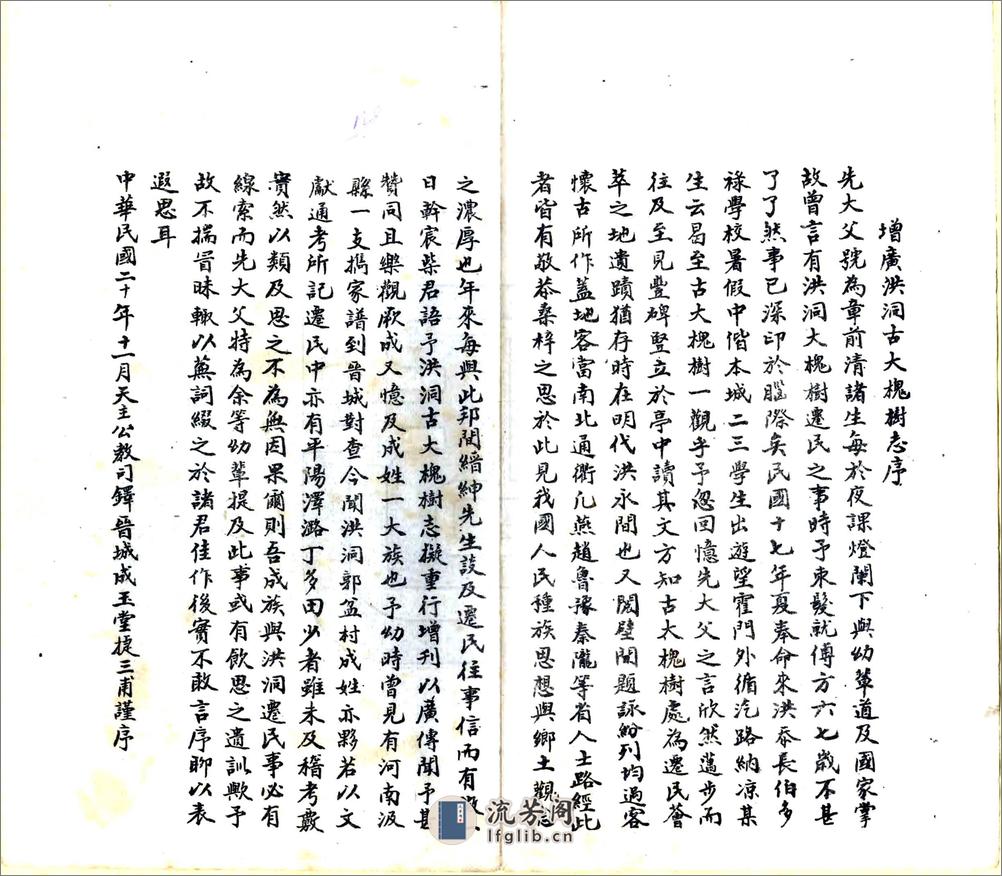 增廣洪洞古大槐樹志序
先大父號為章前清諸生每於夜課燈闌下與幼輩道及國家掌
故曾言有洪洞大槐樹遷民之事時予束髮就傅方六七歲不甚
了了然事已深印於腦際矣民國十七年夏奉命來洪忝長伯多
祿學校暑假中偕本城二三學生出遊望霍門外循汽路納凉某
生云曷至古大槐樹一觀乎予忽回憶先大父之言欣然邁步而
往及至見豐碑豎立於亭中讀其文方知古大槐樹處為遷民薈
萃之地遺蹟猶存時在明代洪永間也又閱壁間題詠紛列均過客
懷古所作蓋地客當南北通衢凡燕趙魯豫秦隴等省人士路經此
者皆有敬恭桑梓之思於此見我國人民種族思想與鄉土觀念
之濃厚也年來每與此邦閭縉紳先生談及遷民往事信而有
日幹宸柴君語予洪洞古大槐樹志擬重行增刊以廣傳聞予甚
贊同且樂觀厥成又憶及成姓一大族也予幼時曾見有河南汲
縣一支携家譜到晉城對查今聞洪洞郭盆村成姓亦夥若以文
獻通考所記遷民中亦有平陽澤潞丁多田少者雖未及稽考覈
實然以類及思之不為無因果爾則吾成族與洪洞遷民事必有
線索而先大父特為余等幼輩提及此事或有飲思之遺訓歟予
故不揣昏昧輒以蕪詞綴之於諸君佳作後實不敢言序聊以表
遐思耳
中華民國二十年十一月天主公教司鐸晉城成玉堂捷三甫謹序
流芳阁
lfglib.cn